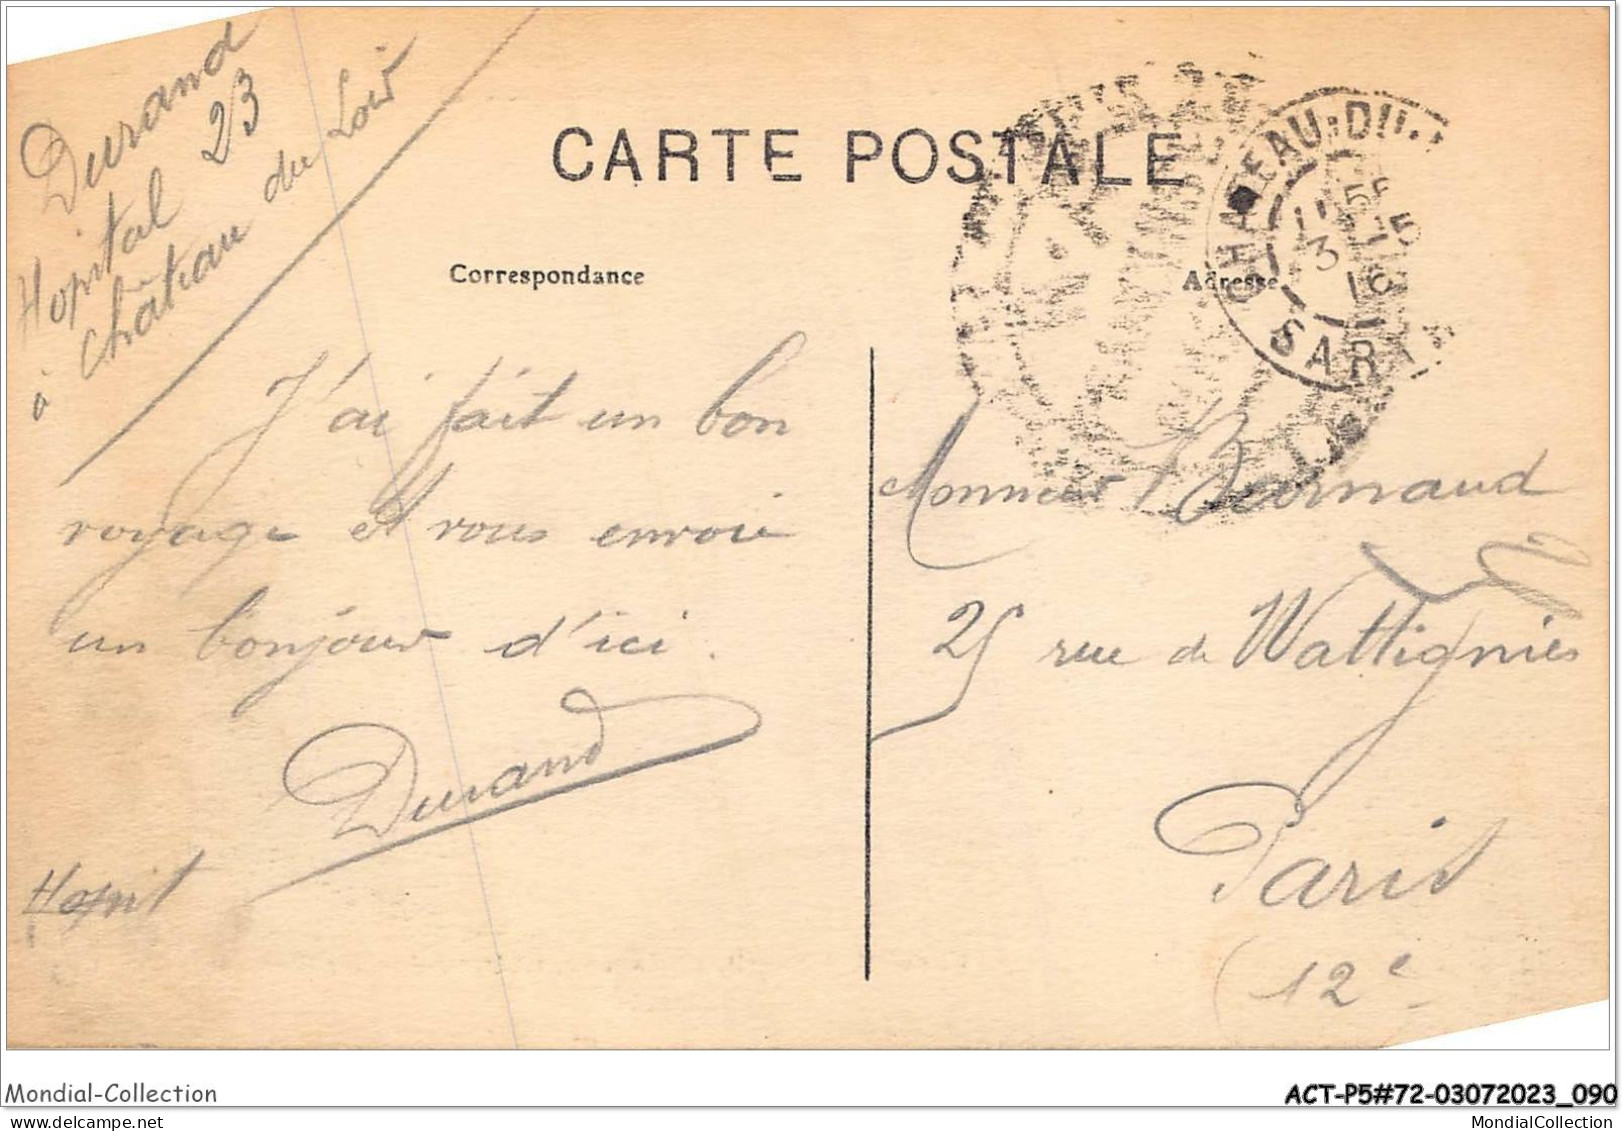 Durand
Hopital 23
à Château du Loir
CARTE POSTALE
Correspondance
Adresse
CHATEAU-DU
SAR
J'ai fait un bon
voyage et vous envoie
un bonjour d'ici.
Durand
Monsieur Barnaud
25 rue de Wattignies
Paris
12e
Mondial-Collection
ACT-P5#72-03072023_090
MondialCollection